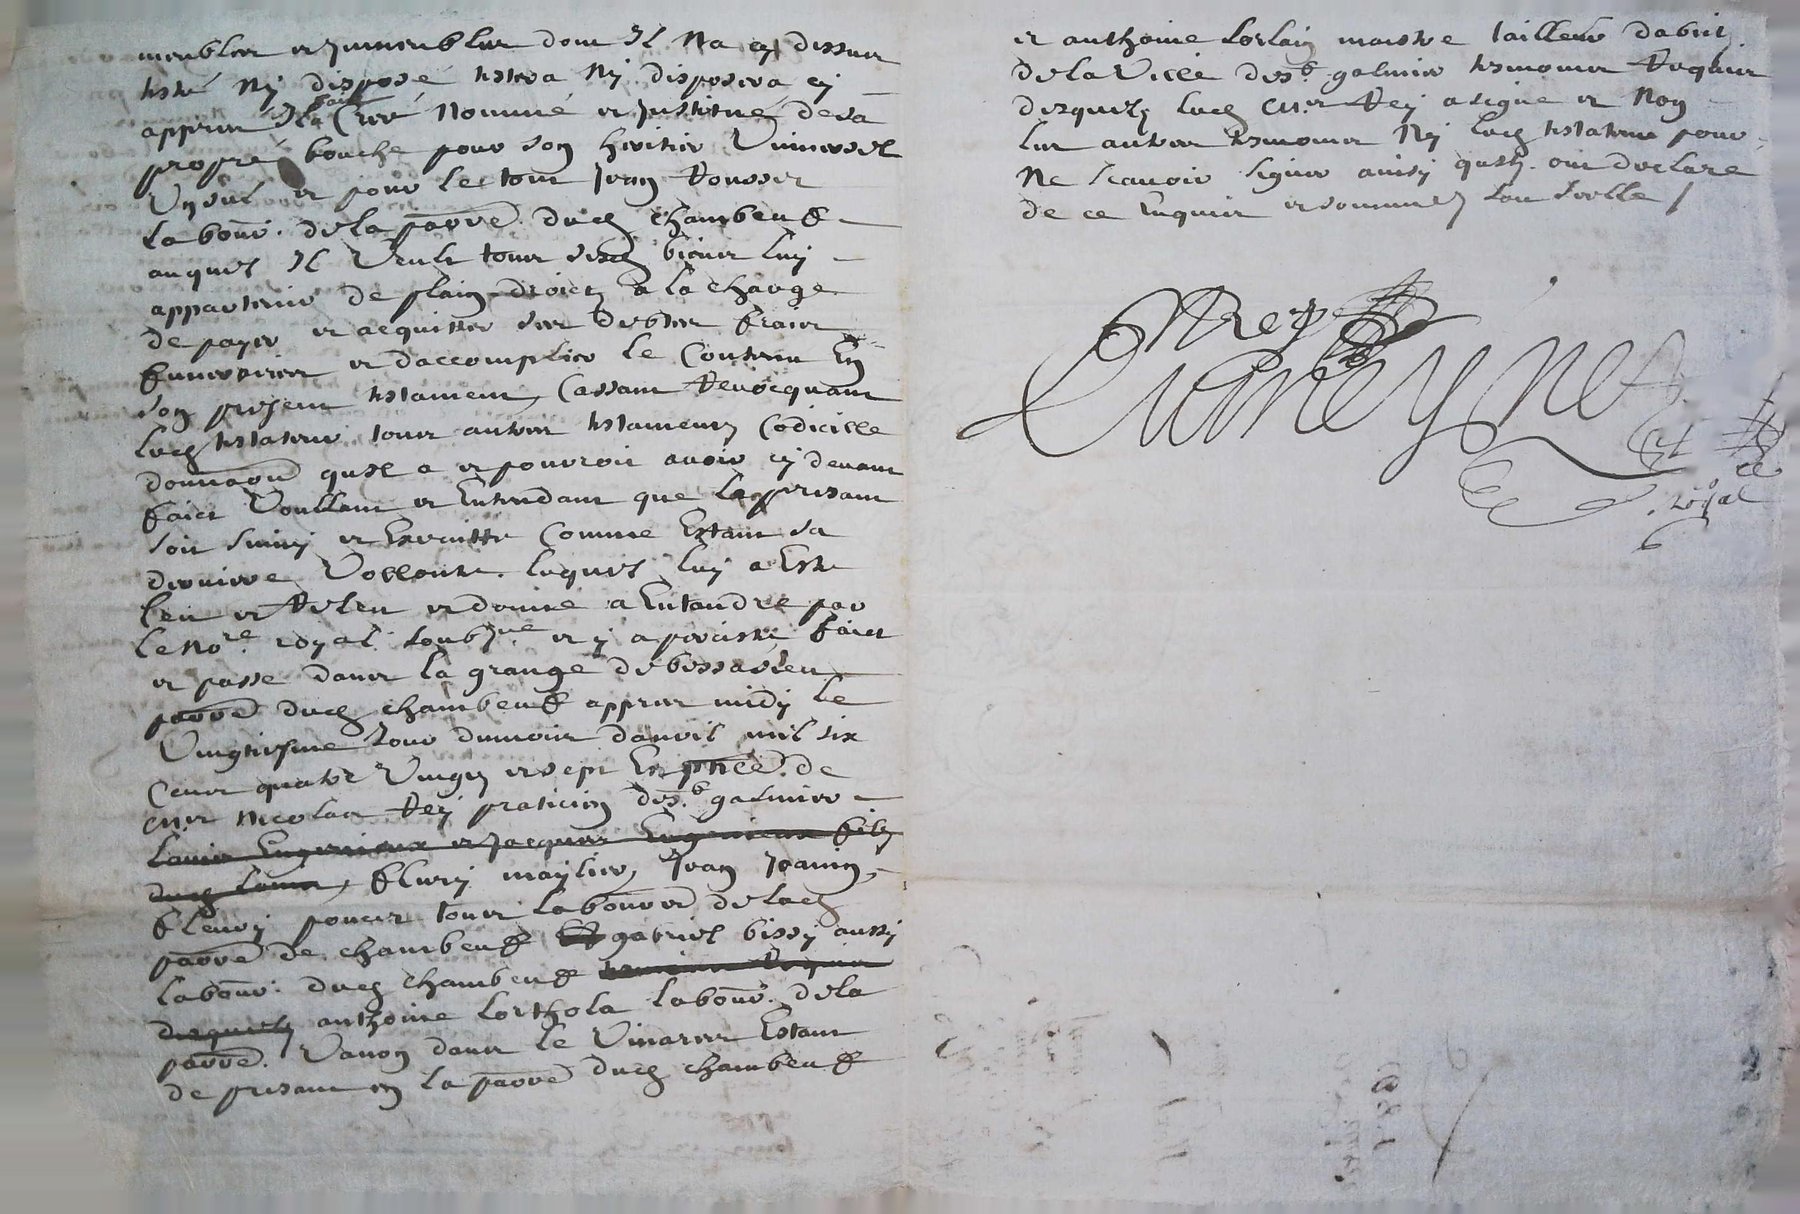 meubles et jmmeubles dont Jl Na cy dessus
testé Ny disposé testera Ny disposera cy
appres Jl a faict Creé Nommé et Justitué de sa
propre bouche pour son heritier Vniversel
Vnseul et pour le tout Jean Rousset
labour. de la parre dud chambeuf
auquel Jl Veult tous sesd biens luy
appartenir de plain droict a la charge
de payer et acquitter ses debtes fraix
funeraires et daccomplir le Contenu En
son present testament, Cassant Revocquant
led testateur tous autres testamens Codicille
donnaon quil a et pourroit avoir cy devant
faict Voullant et Entendant que le presant
soit suivy et Execuitte Comme Estant sa
derniere Vollonte. lequel luy a Este
leu et Releu et donne a Entandre par
le Nore royal soubsne et y a percisté, faict
et passe dans la grange de bessasieu
parre dud chambeuf appres midy le
Vingtiesme Jour du mois dauril mil six
Cens quatre Vingts et sept En pnce. de
Mer Nicolas Rey praticien de St galmier
fleury maylier, Jean Joanin,
fleury poncet tous laboures de lad
parre de chambeuf gabriel bissy aussy
labour. dud chambeuf
anthoine lorthola labour. de la
parre. Vanon dans le Vivares Estant
de presant en la parre dud chambeuf
et anthoine lorlain maistre tailleur dabit
de la Ville de St galmier tesmoins Requis
desquels led Mer Rey a signe et Non
les autres tesmoins Ny led testateur pour
Ne scavoir signer ainsy quils ont declare
de ce Enquis et sommes sau seelle /
Rey
royal